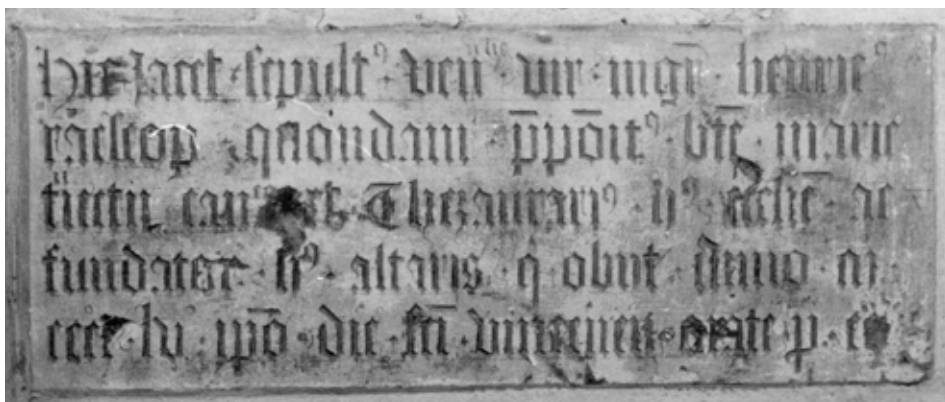 Hic Jacet · sepultꝰ · ven̄ilis · vir · mgr̄ · henricꝰ
raescop · quondam · p̄pōitꝰ · bt̄e · marie
et · Thezaurariꝰ · hꝰ · eccl̄ie · ac
fundator · hꝰ · altaris · q · obiit · Anno · m
cccc · lv · ip̄o · die · sc̄i · vincencii · orate p · eo